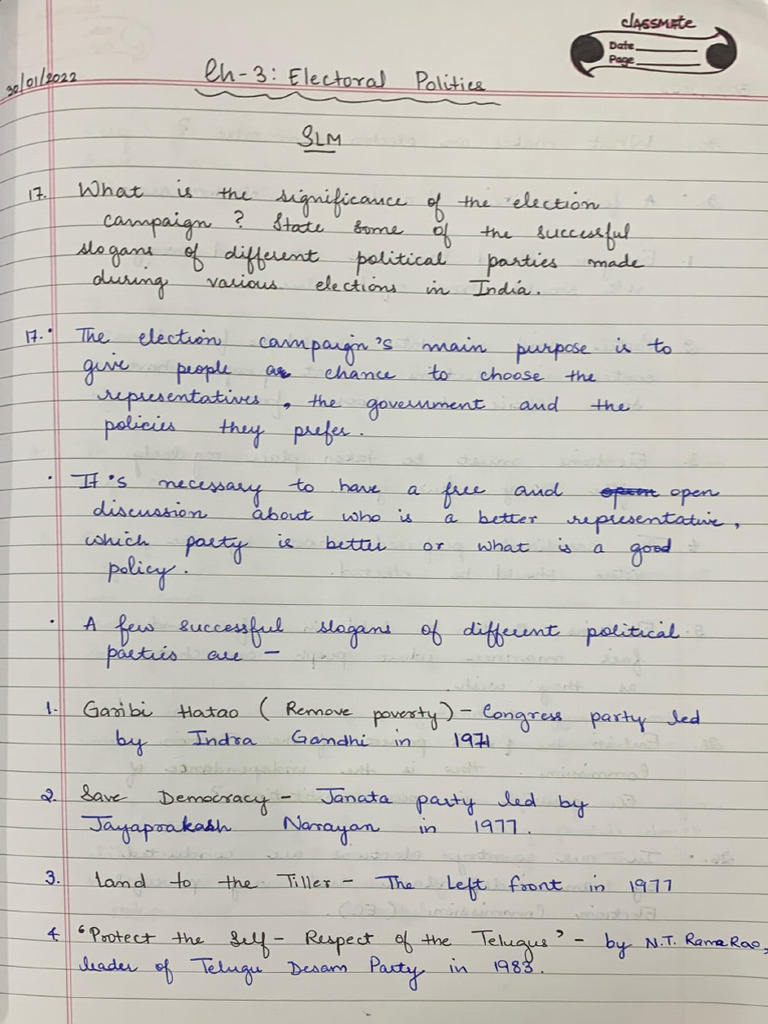 classmate
Date
Page
30/01/2022
Ch-3: Electoral Politics
SLM
17. What is the significance of the election
campaign? State some of the successful
slogans of different political parties made
during various elections in India.
17. • The election campaign's main purpose is to
give people a chance to choose the
representatives, the government and the
policies they prefer.
• It's necessary to have a free and open open
discussion about who is a better representative,
which party is better or what is a good
policy.
• A few successful slogans of different political
parties are –
1. Garibi Hatao (Remove poverty) – Congress party led
by Indra Gandhi in 1971
2. Save Democracy – Janata party led by
Jayaprakash Narayan in 1977.
3. Land to the Tiller – The Left front in 1977
4 'Protect the Self-Respect of the Telugus' – by N.T. Rama Rao,
leader of Telugu Desam Party in 1983.